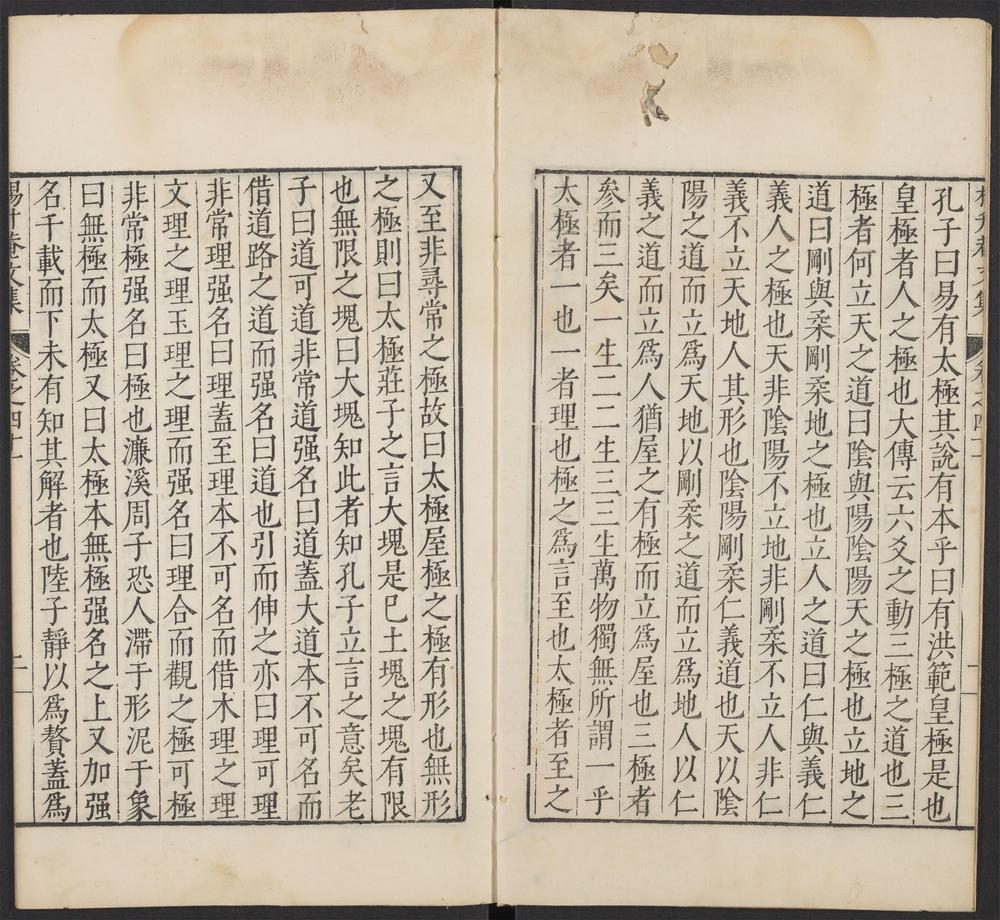 孔子曰易有太極其說有本乎曰有洪範皇極是也
皇極者人之極也大傳云六爻之動三極之道也三
極者何立天之道曰陰與陽陰陽天之極也立地之
道曰剛與柔剛柔地之極也立人之道曰仁與義仁
義人之極也天非陰陽不立地非剛柔不立人非仁
義不立天地人其形也陰陽剛柔仁義道也天以陰
陽之道而立爲天地以剛柔之道而立爲地人以仁
義之道而立爲人猶屋之有極而立爲屋也三極者
參而三矣一生二二生三三生萬物獨無所謂一乎
太極者一也一者理也極之爲言至也太極者至之
又至非尋常之極故曰太極屋極之極有形也無形
之極則曰太極莊子之言大塊是已土塊之塊有限
也無限之塊曰大塊知此者知孔子立言之意矣老
子曰道可道非常道强名曰道蓋大道本不可名而
借道路之道而强名曰道也引而伸之亦曰理可理
非常理强名曰理蓋至理本不可名而借木理之理
文理之理玉理之理而强名曰理合而觀之極可極
非常極强名曰極也濂溪周子恐人滯于形泥于象
曰無極而太極又曰太極本無極强名之上又加强
名千載而下未有知其解者也陸子靜以爲贅蓋爲
楊升菴文集
卷之四十一
二